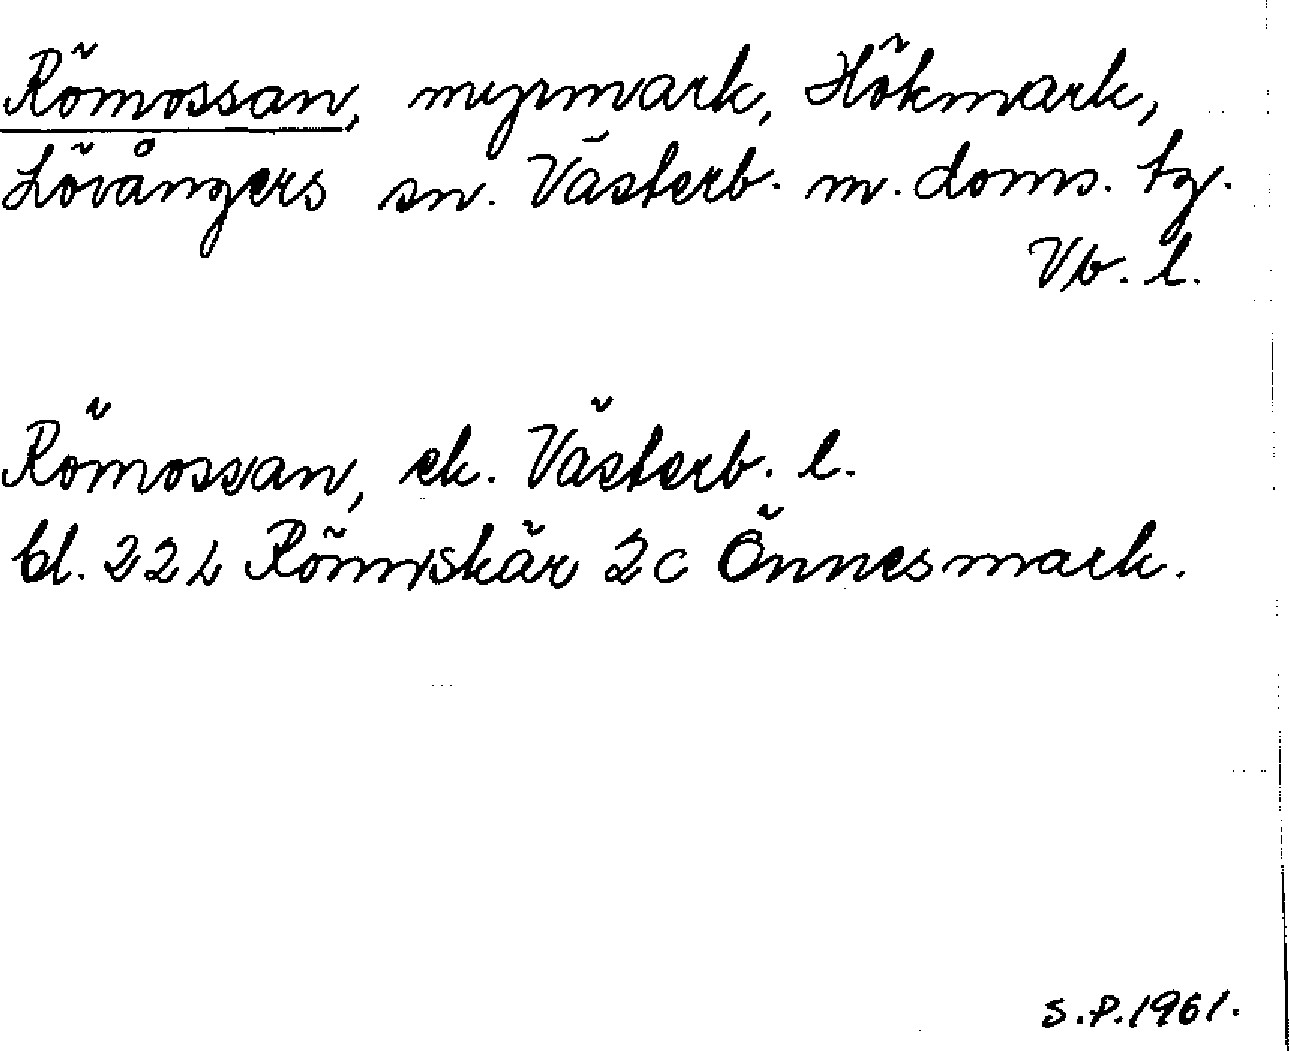 Römossan, myrmark, Hökmark,
Lövångers sn. Västerb. m. doms. tg.
Vb. l.
Römossan, ek. Västerb. l.
bl. 22 L Rönnskär 2c Önnesmark.
S.P.1961.